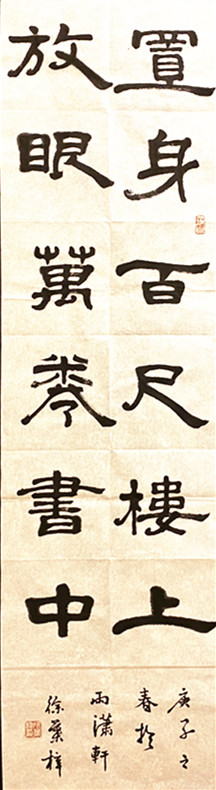 置身百尺樓上
放眼萬卷書中
庚子之
春於
雨瀟軒
徐葉梓